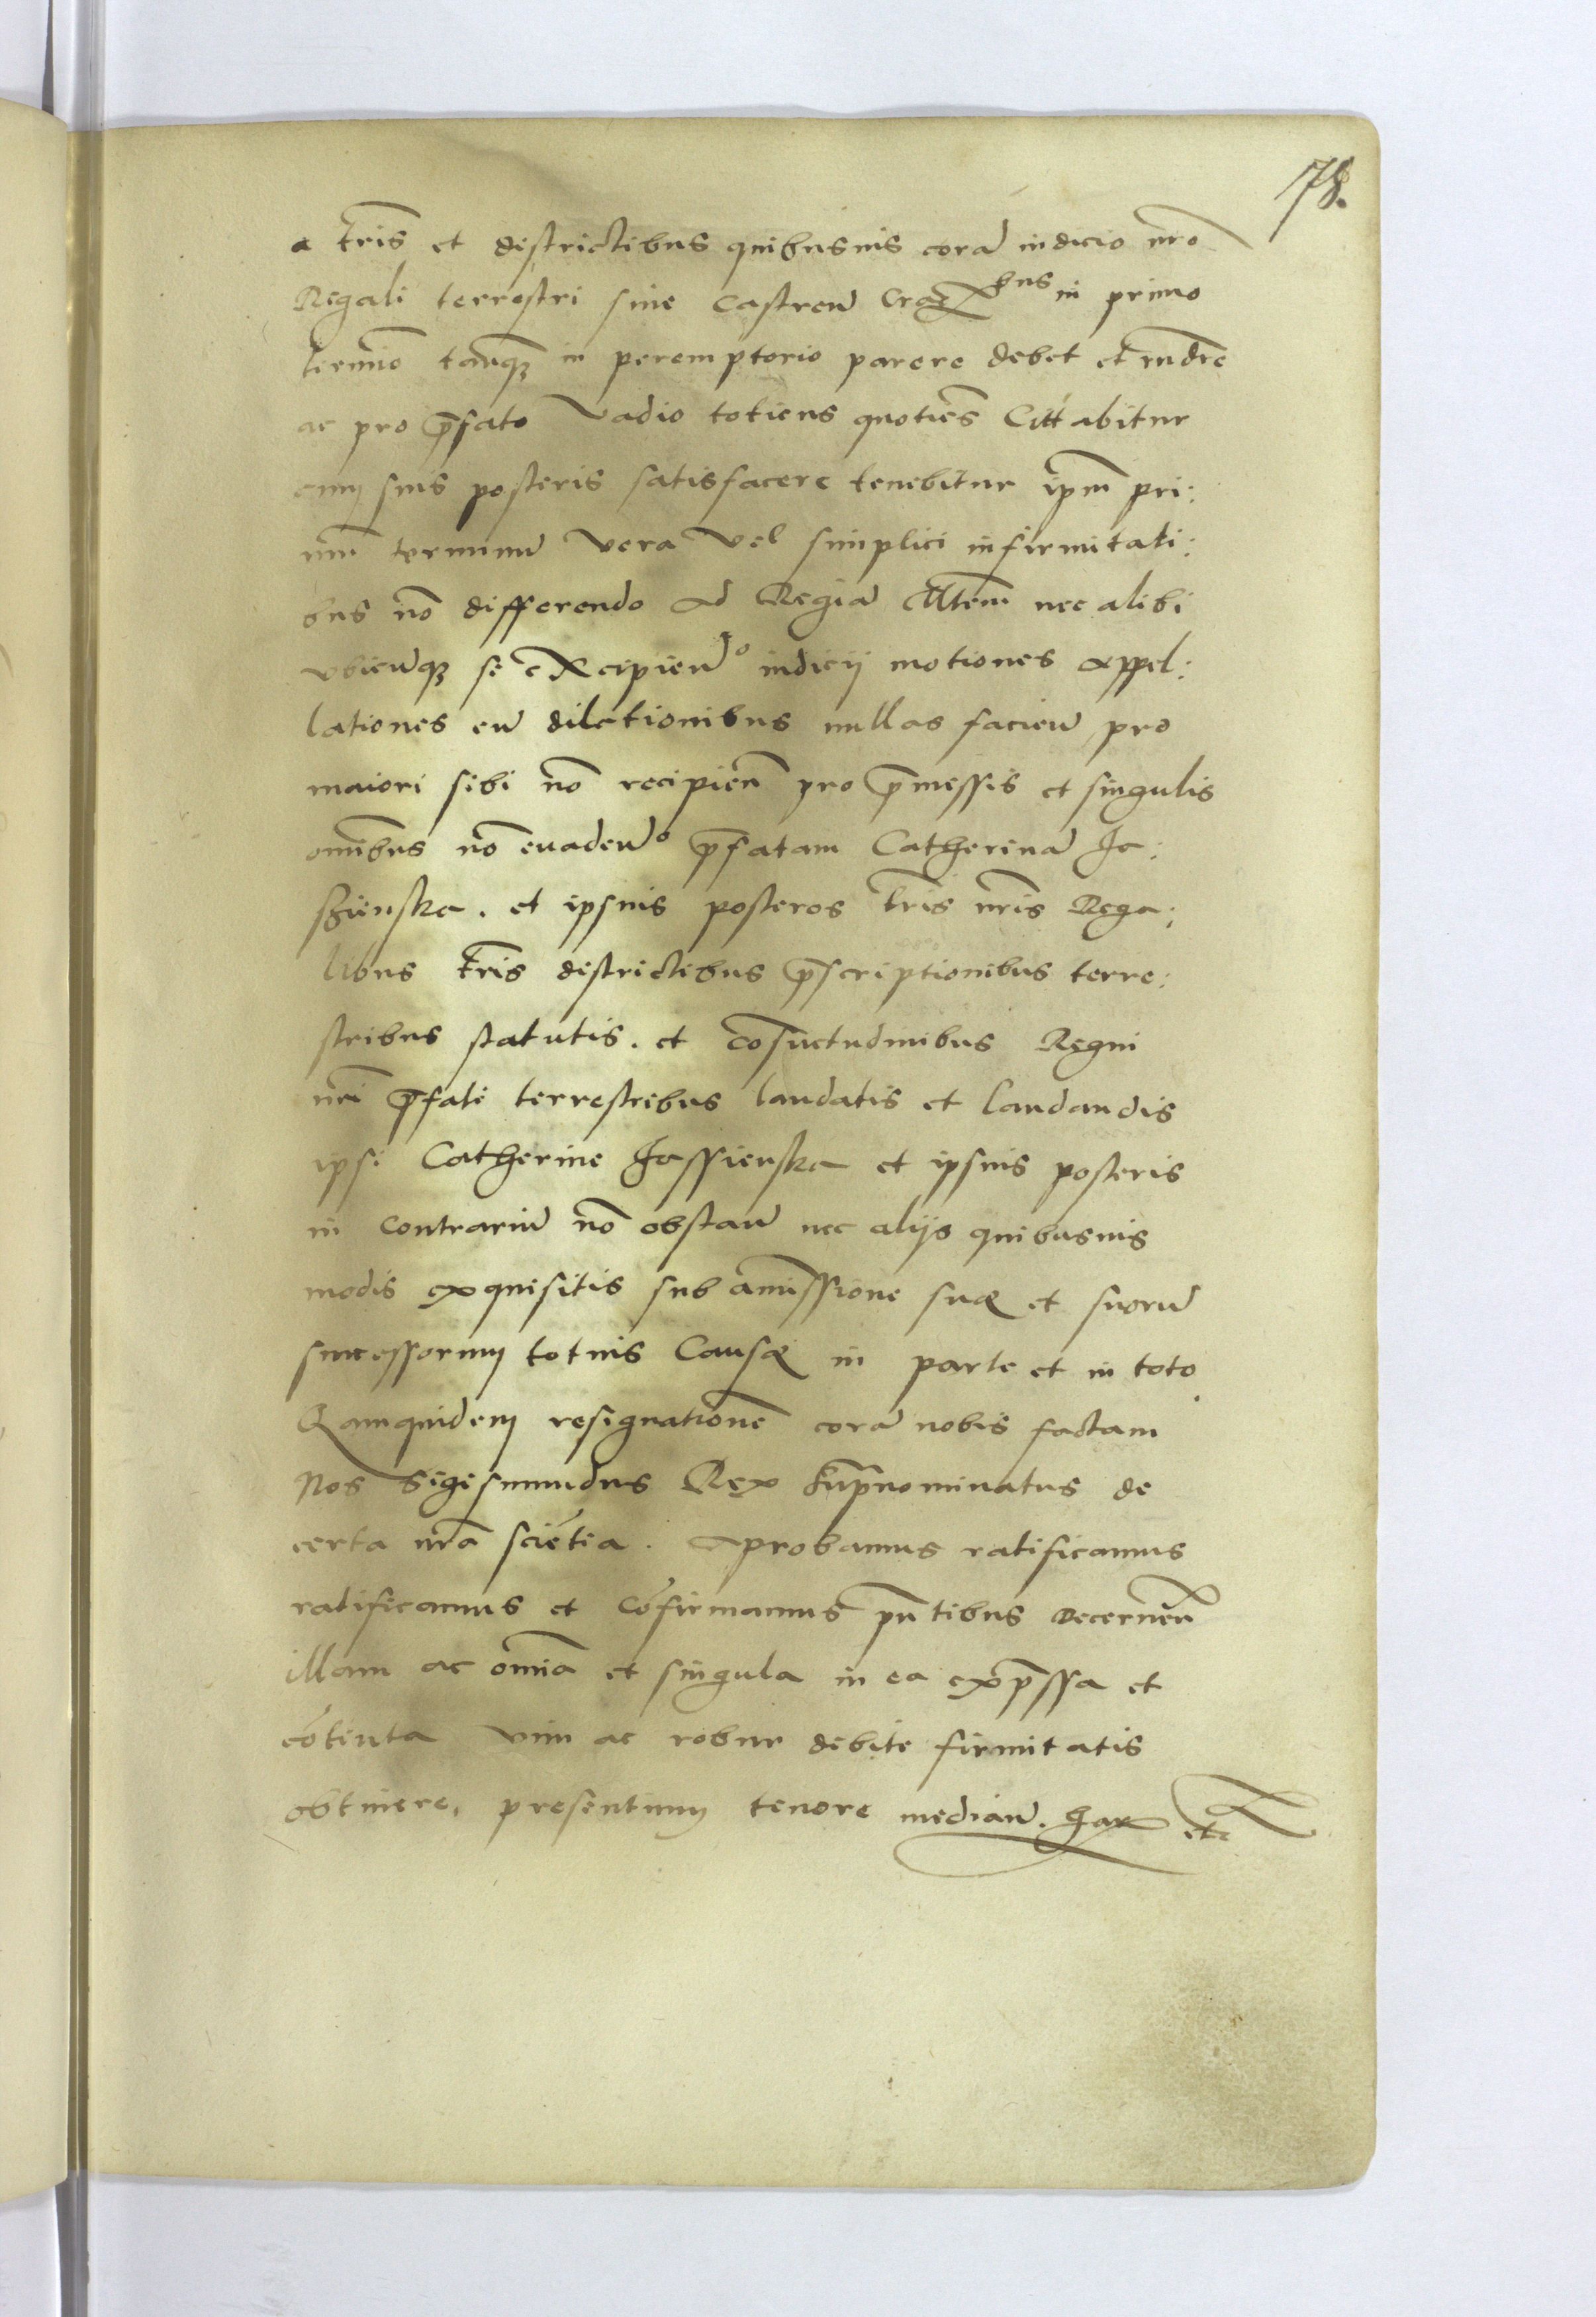 78.
a tr̃is et districtibus quibusuis corã iudicio nr̃o
Regali terrestri siue Castren̄ in primo
termīo tanq̃ in peremptorio parere debet et rn̄dre
ac pro p̄fato Vadio totiens quotiēs Citt abitur
cum suis posteris satisfacere tenebitur ip̄m pri:
mū terminū Vera Vel simplici infirmitati:
bus nō differendo ad Regiā Mtem̄ nec alibi
vbicunq̃ se excipien̄do iudicij motiones appel:
lationes cū dilationibus nullas facien̄ pro
maiori sibi nō recipien̄ pro p̄messis et singulis
omībus nō euaden̄do p̄fatam Catherinā Ja:
szienska. et ipsuis posteros lr̃is nr̃is Rega:
libus tr̃is districtibus p̄scriptionibus terre:
stribus statutis. et cōsuetudinibus Regni
nr̃i p̄fati terrestribus laudatis et laudandis
ipsi Catherine Jassienska et ipsuis posteris
in contrariū nō obstan̄ nec alijs quibusuis
modis exquisitis sub amissione suæ et suorū
successorum totuis Causæ in parte et in toto.
Qamquidem resignationē corā nobis factam
Nos Sigismundus Rex supranominatus de
certa nr̃a sciētia. Aprobamus ratificamus
ratificamus et cōfirmamus pn̄tibus Decernen̄
illam ac omīa et singula in ea exp̄ssa et
cōtenta vim ac robur debite firmitatis
obtinere, presentium tenore median̄. har etc